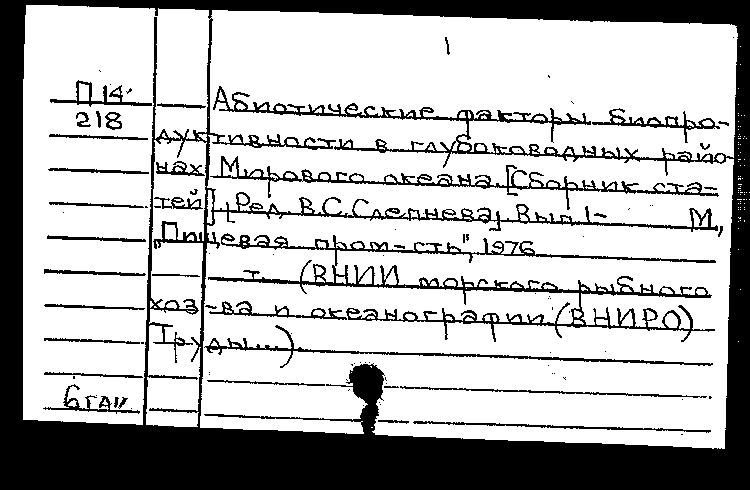 1
П 14
218
Абиотические факторы биопро-
дуктивности в глубоководных райо-
нах Мирового океана. [Сборник ста-
тей]. [Ред. В.С. Слепнева]. Вып 1- М.,
„Пищевая пром-сть", 1976
т. (ВНИИ морского рыбного
хоз-ва и океанографии (ВНИРО)
Труды....).